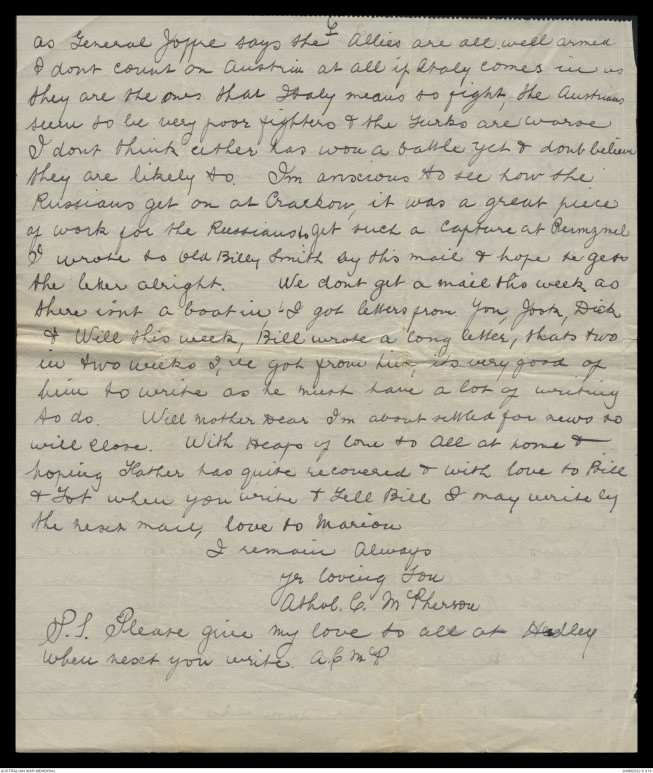 6
as General Joffre says the Allies are all well armed
I dont count on Austria at all if Italy comes in as
they are the ones that Italy means to fight, the Austrians
seem to be very poor fighters & the Turks are worse
I dont think either has won a battle yet & dont believe
they are likely to. I'm anxious to see how the
Russians get on at Crackow, it was a great piece
of work for the Russians to get such a capture at
I wrote to Old Billy Smith by this mail & hope he gets
the letter alright. We dont get a mail this week as
there isnt a boat in. I got letters from You, Jock, Dick
& Will this week, Bill wrote a long letter, thats two
in two weeks I've got from him, its very good of
him to write as he must have a lot of writing
to do. Well Mother Dear I'm about settled for news so
will close. With Heaps of love to All at home &
hoping Father has quite recovered & with love to Bill
& Tot when you write & Tell Bill I may write by
the next mail, love to Marion
I remain Always
yr loving Son
Athol. C. McPherson
P.S. Please give my love to all at Hedley
when next you write. A.C McP
AUSTRALIAN WAR MEMORIAL